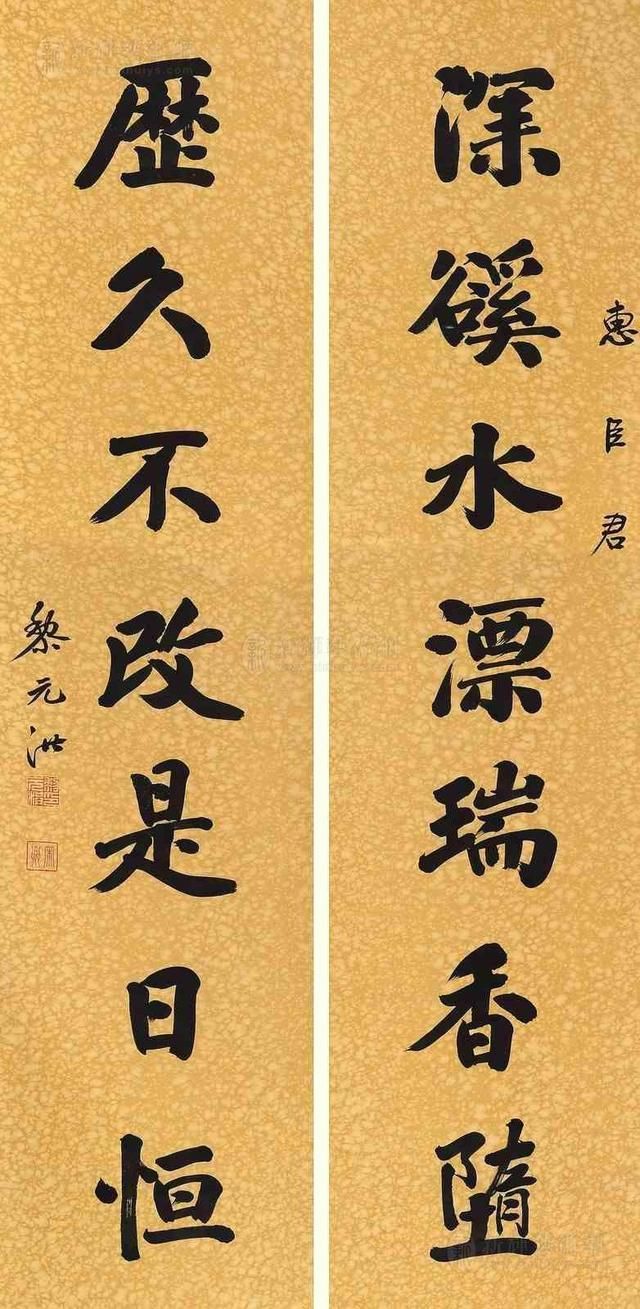 惠臣君
深豀水漂瑞香堕
歷久不改是日恒
黎元洪